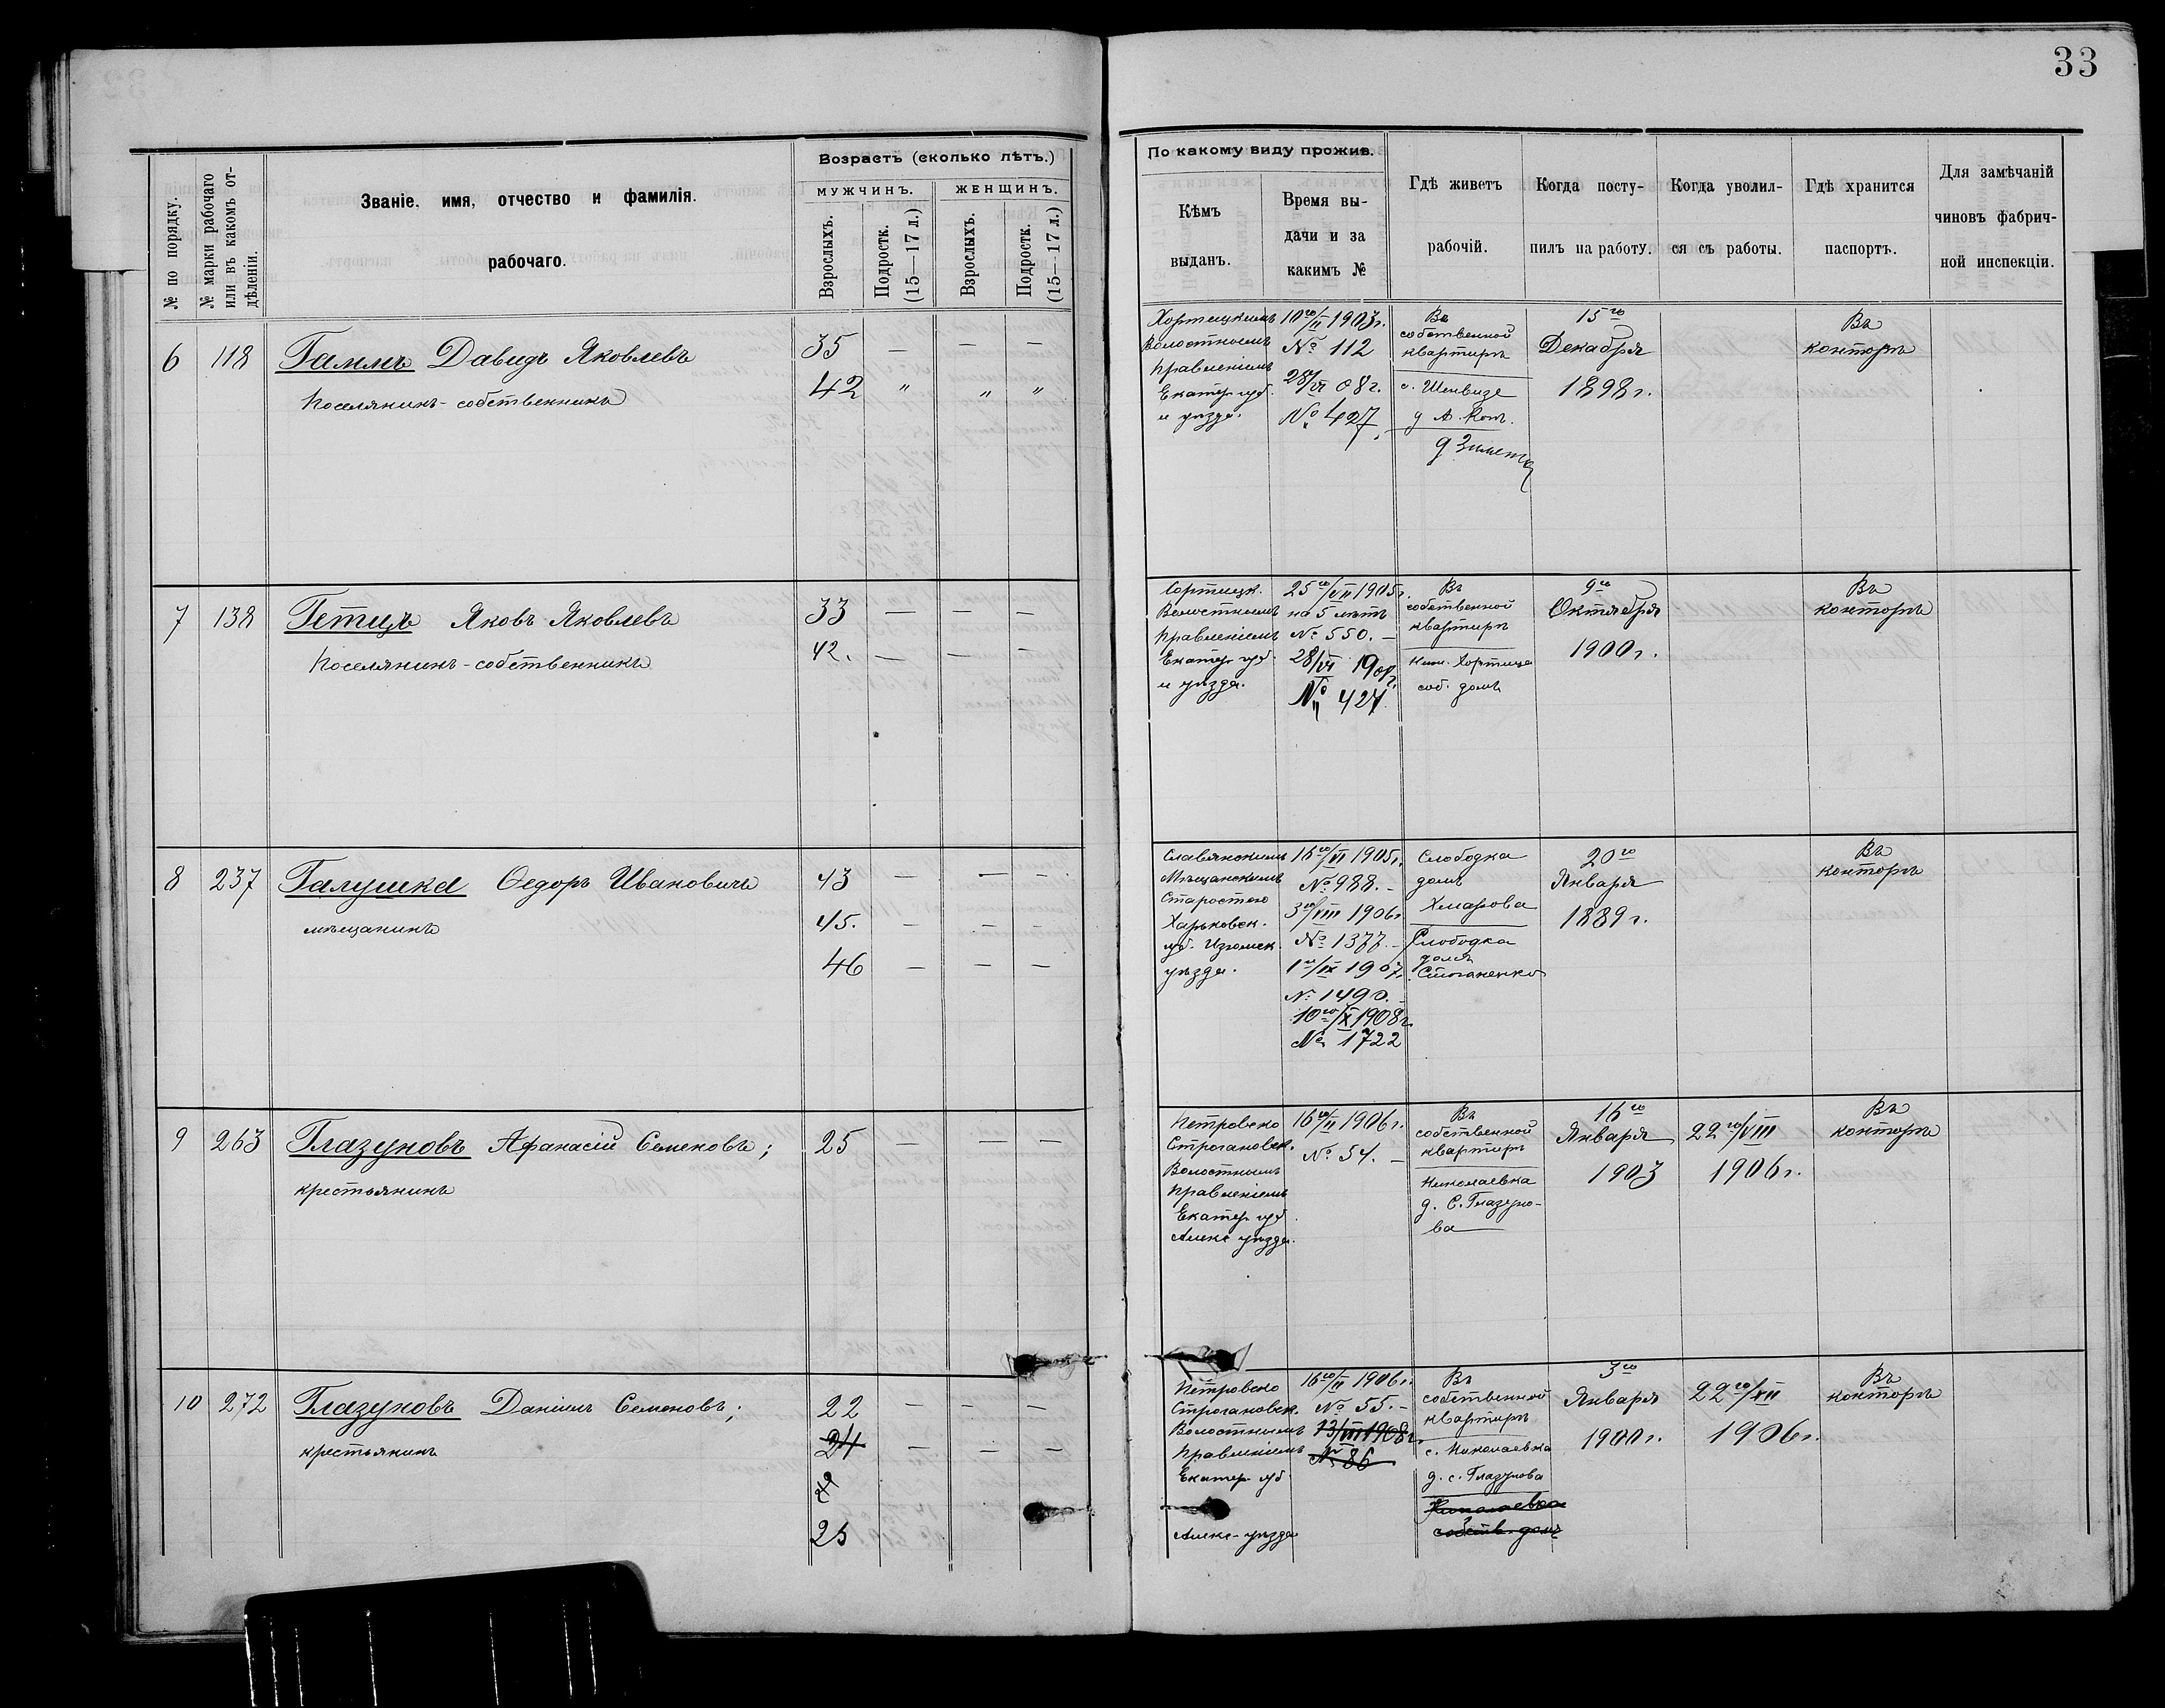 33
№ по порядку.
№ марки рабочаго или въ какомъ отдѣленіи.
Званіе, имя, отчество и фамилія.
рабочаго.
Возрастъ (сколько лѣтъ.)
МУЖЧИНЪ.
ЖЕНЩИНЪ.
Взрослыхъ.
Подростк. (15—17 л.)
Взрослыхъ.
Подростк. (15—17 л.)
По какому виду прожив.
Кѣмъ
выданъ.
Время вы-
дачи и за
какимъ №
Гдѣ живетъ
рабочій.
Когда посту-
пилъ на работу.
Когда уволил-
ся съ работы.
Гдѣ хранится
паспортъ.
Для замѣчаній
чиновъ фабрич-
ной инспекціи.
6 118 Гаммъ Давидъ Яковлевъ 35 — — —
Поселянинъ-собственникъ 42 " " "
Хортицкимъ
Волостнымъ
Правленіемъ
Екатер. губ.
и уѣзда.
10го/II 1903г.
№ 112
28/VI 08г.
№ 427
Въ
собственной
квартирѣ
с. Шенвизе
у А. Коп.
15го
Декабря
1898г.
Въ
конторѣ
7 138 Гетцъ Яковъ Яковлевъ 33 — — —
Поселянинъ-собственникъ 42. — — —
Хортицк.
Волостнымъ
Правленіемъ
Екатер. губ.
и уѣзда.
25го/VII 1905г.
на 5 лѣтъ
№ 550. —
28/VI 1908г.
№ 427
Въ
собственной
квартирѣ
Ниж. Хортица
соб. домъ
9го
Октября
1900г.
Въ
конторѣ
8 237 Галушка Ѳедоръ Ивановичъ 43 — — —
мѣщанинъ 45. — — —
46 — — —
Славянскимъ
Мѣщанскимъ
Старостою
Харьковск.
губ. Изюмск.
уѣзда.
16го/VI 1905г.
№ 988. —
3го/VIII 1906г
№ 1377. —
1го/IX 1907.
№ 1490. —
10го/X 1908г.
№ 1722
Слободка
домъ
Хмарова
Слободка
домъ
Степаненко
20го
Января
1889г.
Въ
конторѣ
9 263 Глазуновъ Афанасій Семеновъ; 25 — — —
крестьянинъ
Петровско
Строгановск.
Волостнымъ
Правленіемъ
Екатер. губ.
Алекс уѣзда.
16го/II 1906г.
№ 54. —
Въ
собственной
квартирѣ
Николаевка
д. С. Глазуно-
ва
16го
Января
1903
22го/VIII
1906г.
Въ
конторѣ
10 272 Глазуновъ Даніилъ Семеновъ; 22 — — —
крестьянинъ 24 — — —
25
Петровско
Строгановск.
Волостнымъ
Правленіемъ
Екатер. губ
Алекс. уѣзда
16го/II 1906г.
№ 55. —
13/III 1908г.
№ 86
Въ
собственной
квартирѣ
с. Николаевка
д. с. Глазунова
Николаевка
собств. домъ
3го
Января
1900г.
22го/XII
1906г.
Въ
конторѣ